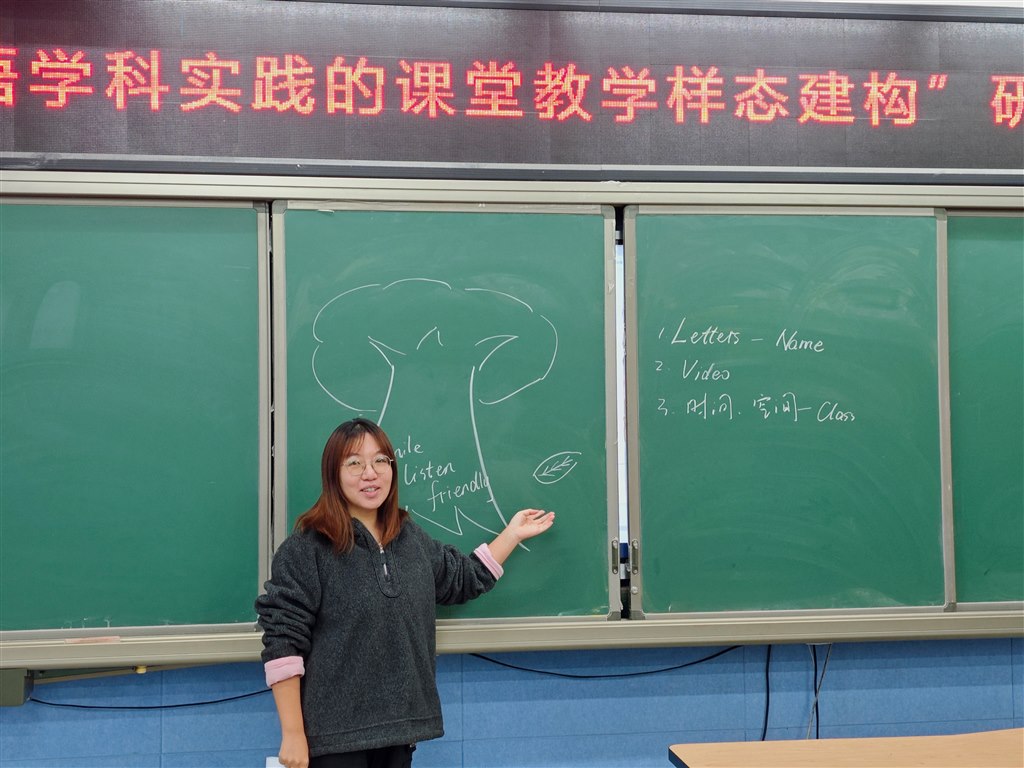 语学科实践的课堂教学样态建构” 研
mile
listen
friendly
1 Letters - Name
2. Video
3. 时间.空间-Class